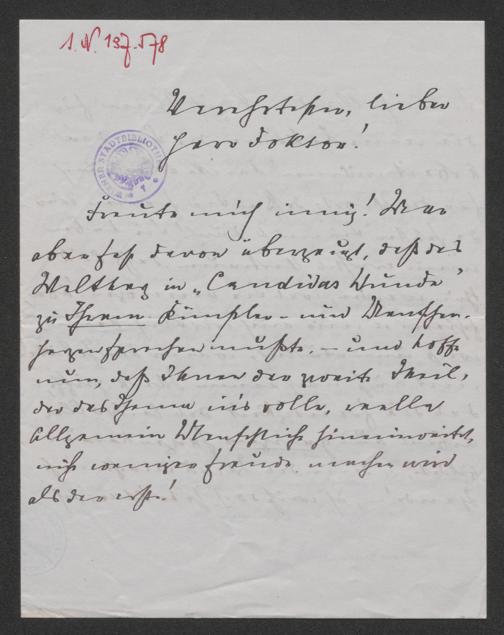 I. N. 197.578
WIENER STADTBIBLIOTHEK
Verehrtester, lieber
Herr Doktor!
Freute mich innig! War
aber fest davon überzeugt, daß das
in „Candidas Wunde“
zu Ihrem Künstler- und Menschen-
herzen sprechen mußte, – und hoffe
nun, daß Ihnen der zweite Theil,
der das Thema ins volle, reelle
Allgemein Menschliche hineinweitet,
nicht weniger Freude machen wird
als der erste!